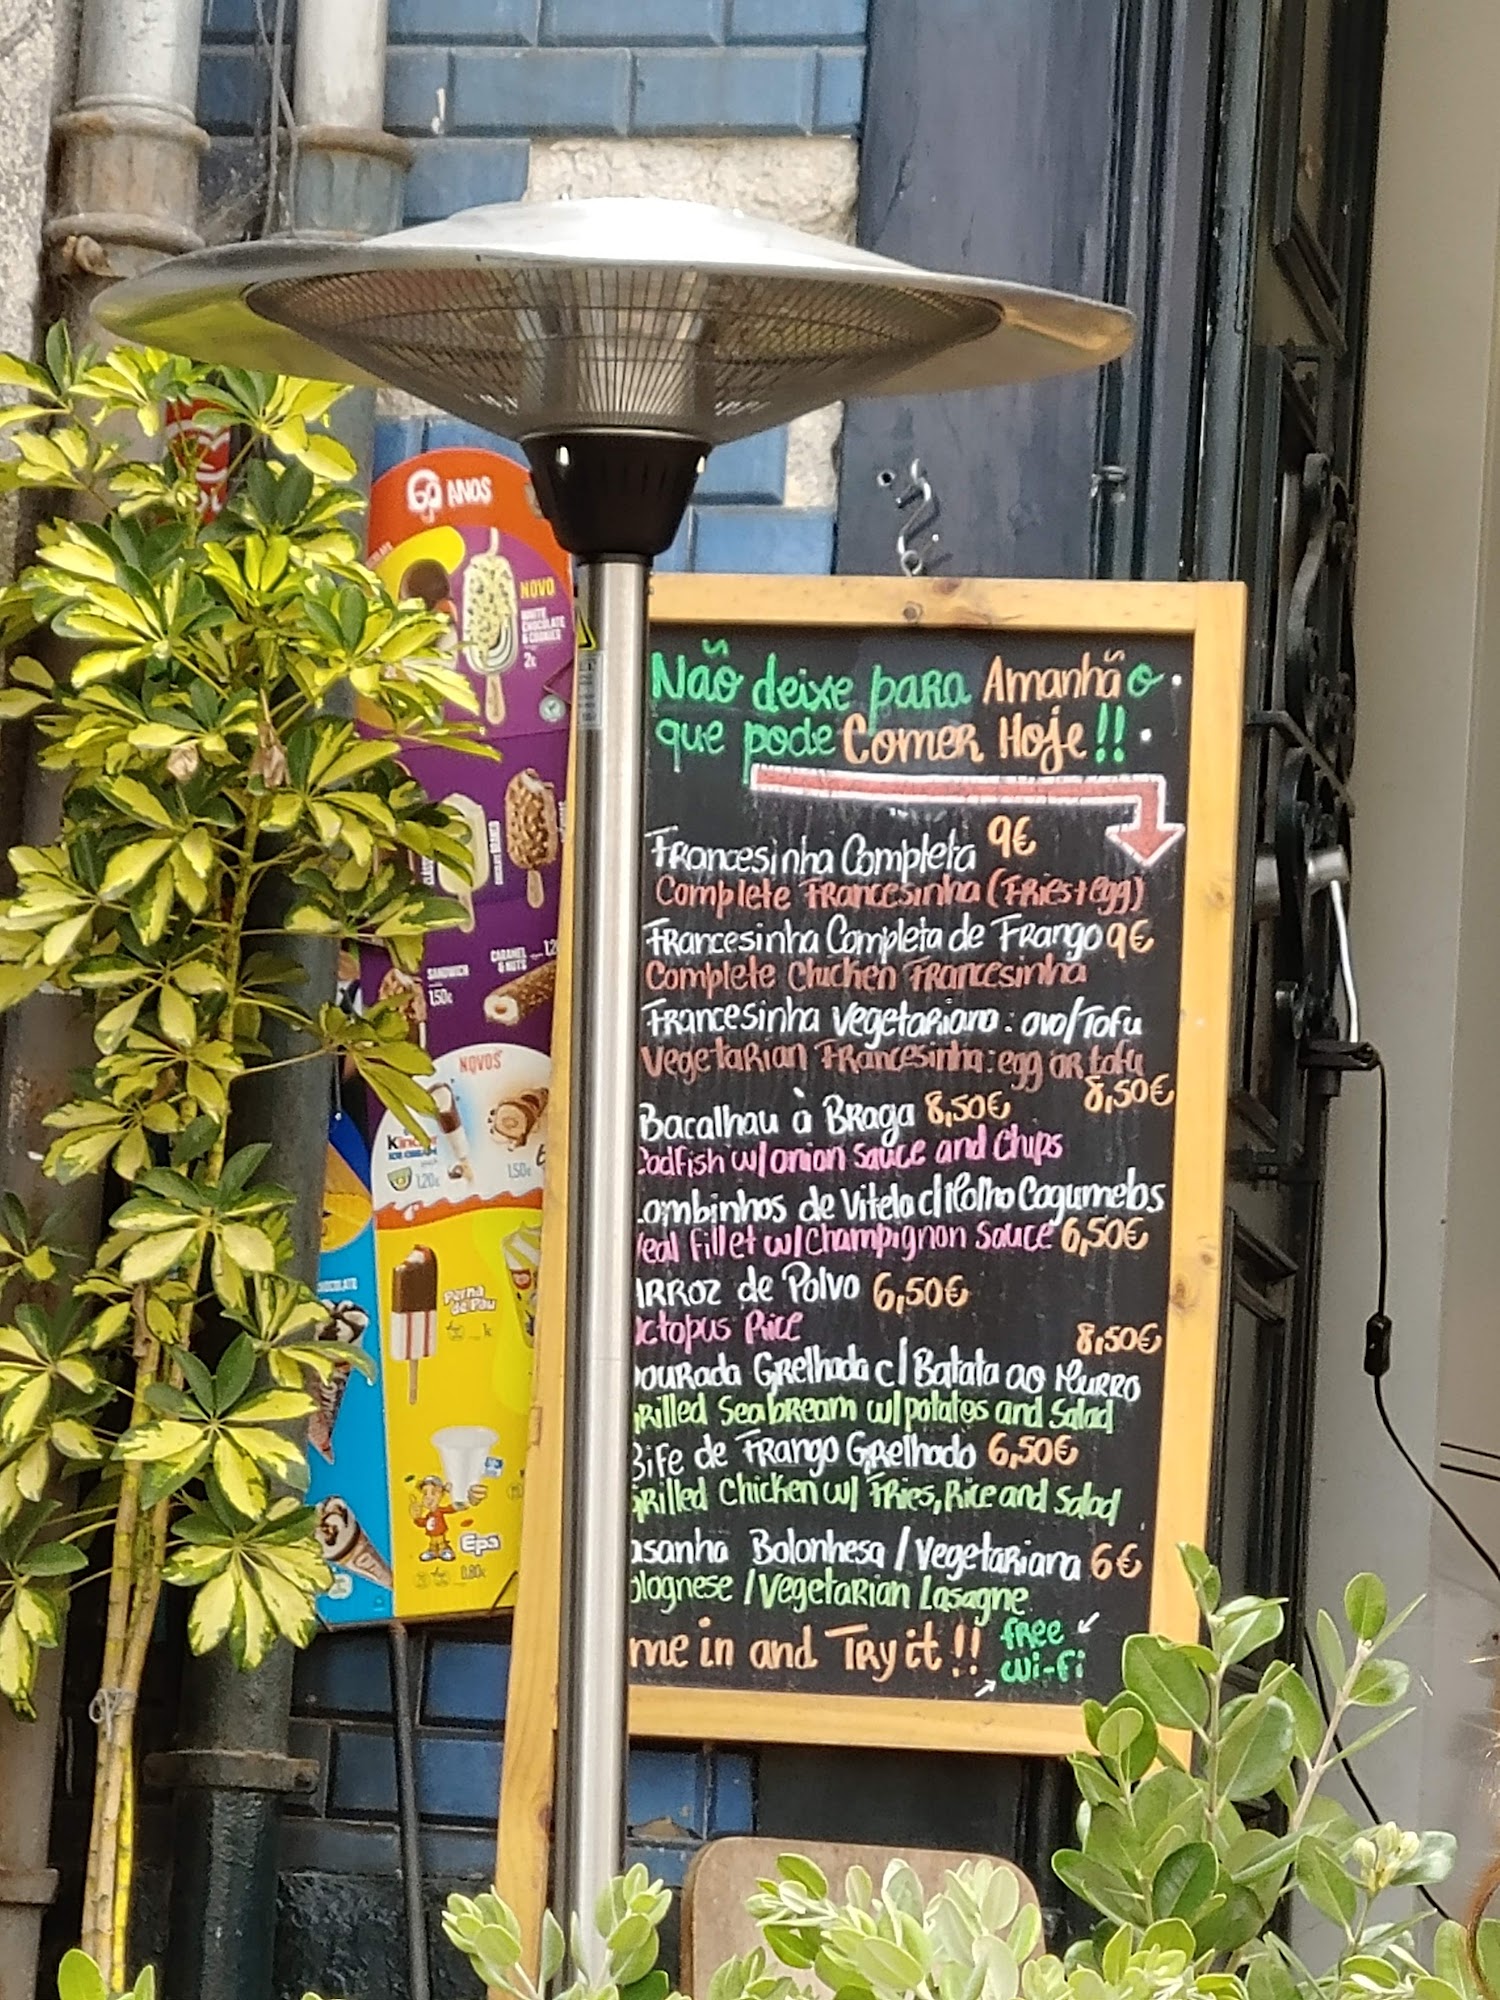 60 ANOS
NOVO
WHITE
CHOCOLATE
& COOKIES
2€
SANDWICH
1,50€
CARAMEL
& NUTS
NOVOS
Kinder
ICE CREAM
1,20€
1,50€
Perna
de Pau
1€
Epa
0,80€
Não deixe para Amanhã o
que pode Comer Hoje!!
Francesinha Completa 9€
Complete Francesinha (Fries+egg)
Francesinha Completa de Frango 9€
Complete Chicken Francesinha
Francesinha Vegetariana: ovo/Tofu
Vegetarian Francesinha: egg or tofu
8,50€
Bacalhau à Braga 8,50€
Codfish w/onion sauce and Chips
ombinhos de Vitela c/Molho Cogumelos
eal fillet w/Champignon Sauce 6,50€
Arroz de Polvo 6,50€
ctopus Rice
8,50€
ourada Grelhada c/Batata ao Murro
rilled Seabream w/potatos and Salad
Bife de Frango Grelhado 6,50€
Grilled Chicken w/ Fries, Rice and Salad
asanha Bolonhesa / Vegetariana 6€
olognese / Vegetarian Lasagne
me in and Try it!!
free
wi-fi